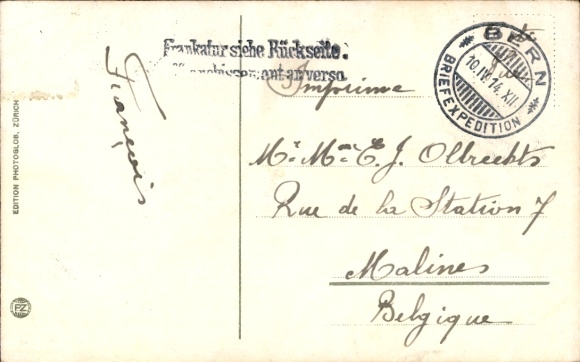 Frankatur siehe Rückseite.
Affranchissement au verso.
BERN
10.IV.14.XII
BRIEFEXPEDITION
Imprimé
François
Mr. Mme E. J. Olbrechts
Rue de la Station 7
Malines
Belgique
EDITION PHOTOGLOB, ZÜRICH
PZ